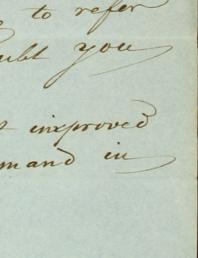 to refer
ubt you
inxproved
mand in